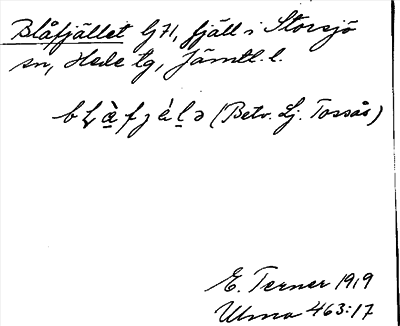 Blåfjället G71, fjäll i Storsjö
sn, Hede tg, Jämtl. l.
(Betv. Lj. Tossås)
E. Terner 1919
Ulma 463:17